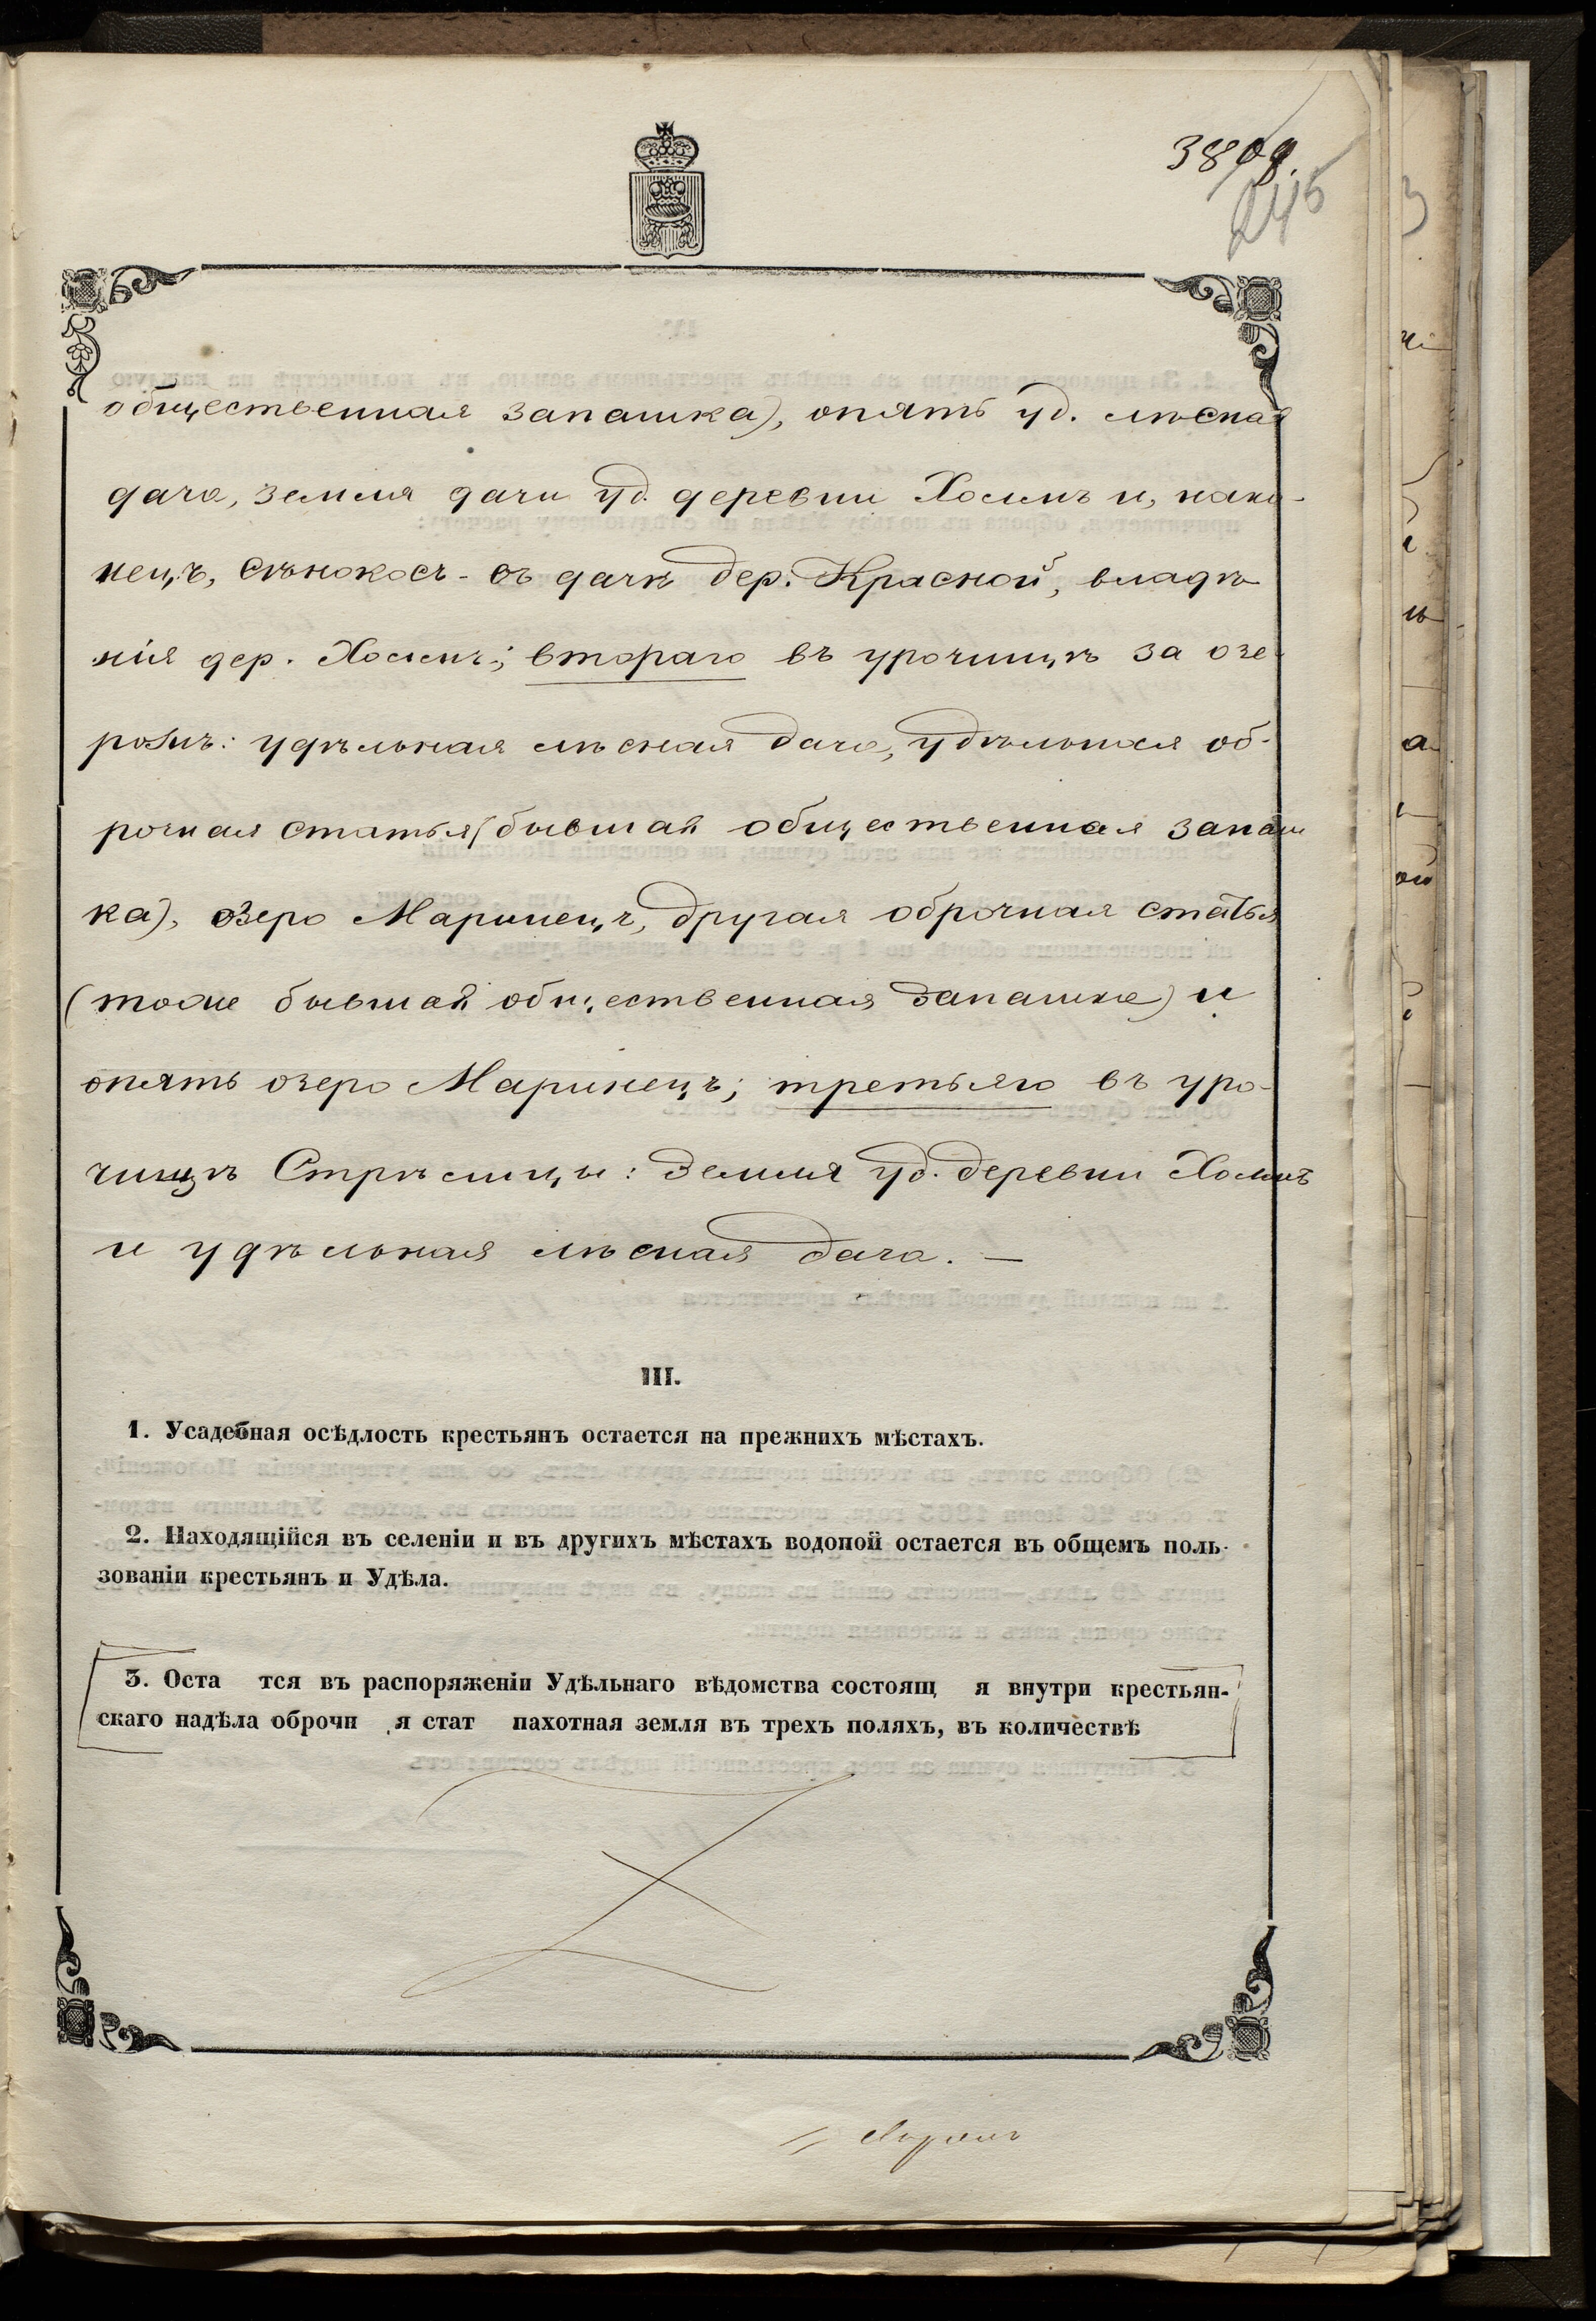 общественная запашка), опять уд. лѣсная
дача, земля дачи уд. деревни Холмъ и, нако-
нецъ, сѣнокосъ - въ дачѣ дер. Красной, владѣ-
нія дер. Холмъ; втораго въ урочищѣ за озе-
ромъ: удѣльная лѣсная дача, удѣльная об-
рочная статья (бывшая общественная запаш
ка), озеро Маринецъ, другая оброчная статья
(тоже бывшая общественная запашка) и
опять озеро Маринецъ; третьяго въ уро-
чищѣ Стрѣлицы: земля уд. деревни Холмъ
и удѣльная лѣсная дача. —
III.
1. Усадебная осѣдлость крестьянъ остается на прежнихъ мѣстахъ.
2. Находящійся въ селеніи и въ другихъ мѣстахъ водопой остается въ общемъ поль-
зованіи крестьянъ и Удѣла.
3. Оста тся въ распоряженіи Удѣльнаго вѣдомства состоящ я внутри крестьян-
скаго надѣла оброчн я стат пахотная земля въ трехъ поляхъ, въ количествѣ